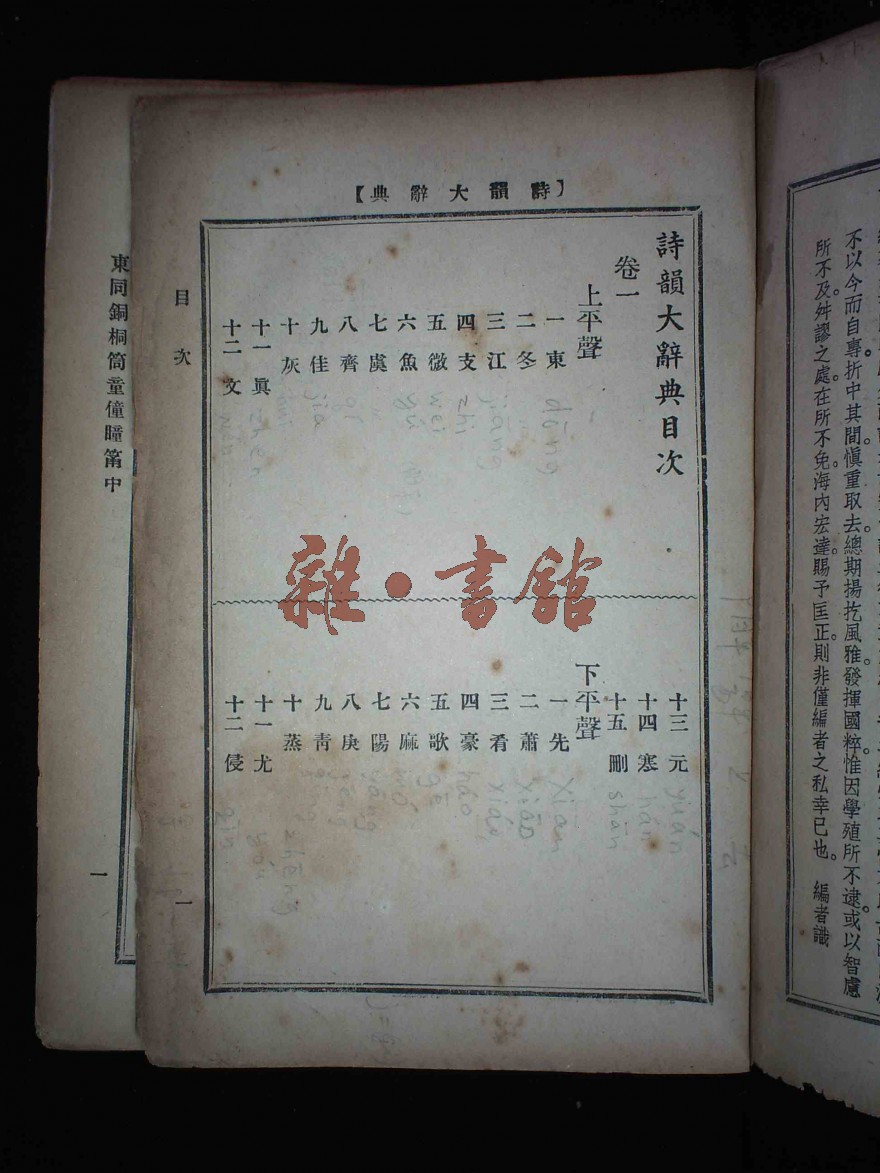 所不及舛謬之處在所不免。海內宏達。賜予匡正。則非僅編者之私幸已也。　編者識
【詩韻大辭典】
詩韻大辭典目次
卷一
上平聲
一東
二冬
三江
四支
五微
六魚
七虞
八齊
九佳
十灰
十一眞
十二文
十三元
十四寒
十五刪
下平聲
一先
二蕭
三肴
四豪
五歌
六麻
七陽
八庚
九靑
十蒸
十一尤
十二侵
dōng
jiāng
zhī
wēi
yú
jiā
zhēn
yuán
hán
shān
xiān
xiāo
xiáo
háo
gē
yáng
zhēng
yóu
qīn
目次
一
東同銅桐筒童僮瞳筩中
一
雜·書館
不以今而自專折中其間愼重取去。總期揚扢風雅發揮國粹惟因學殖所不逮。或以智慮